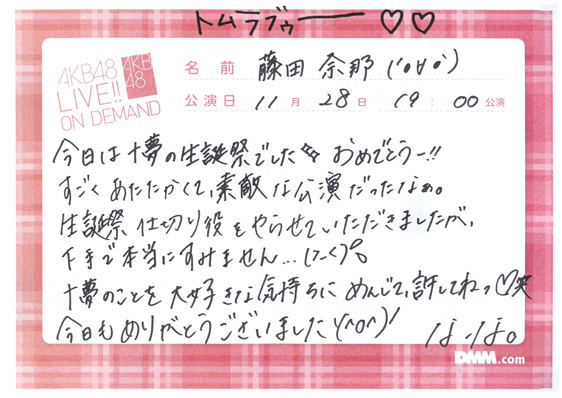 トムラブゥーーー♡♡
AKB48
LIVE!!
ON DEMAND
AKB
48
名前 藤田 奈那 ('●∀●')
公演日 11月 28日 19:00公演
今日は十夢の生誕祭でした おめでとうー!!
すごくあたたかくて、素敵な公演だったなぁ。
生誕祭仕切り役をやらせていただきましたが、
下手で本当にすみません...(-_-)
十夢のことを大好きな気持ちにめんじて、許してねっ♡笑
今日もありがとうございました\(^o^)/
なっな。
DMM.com